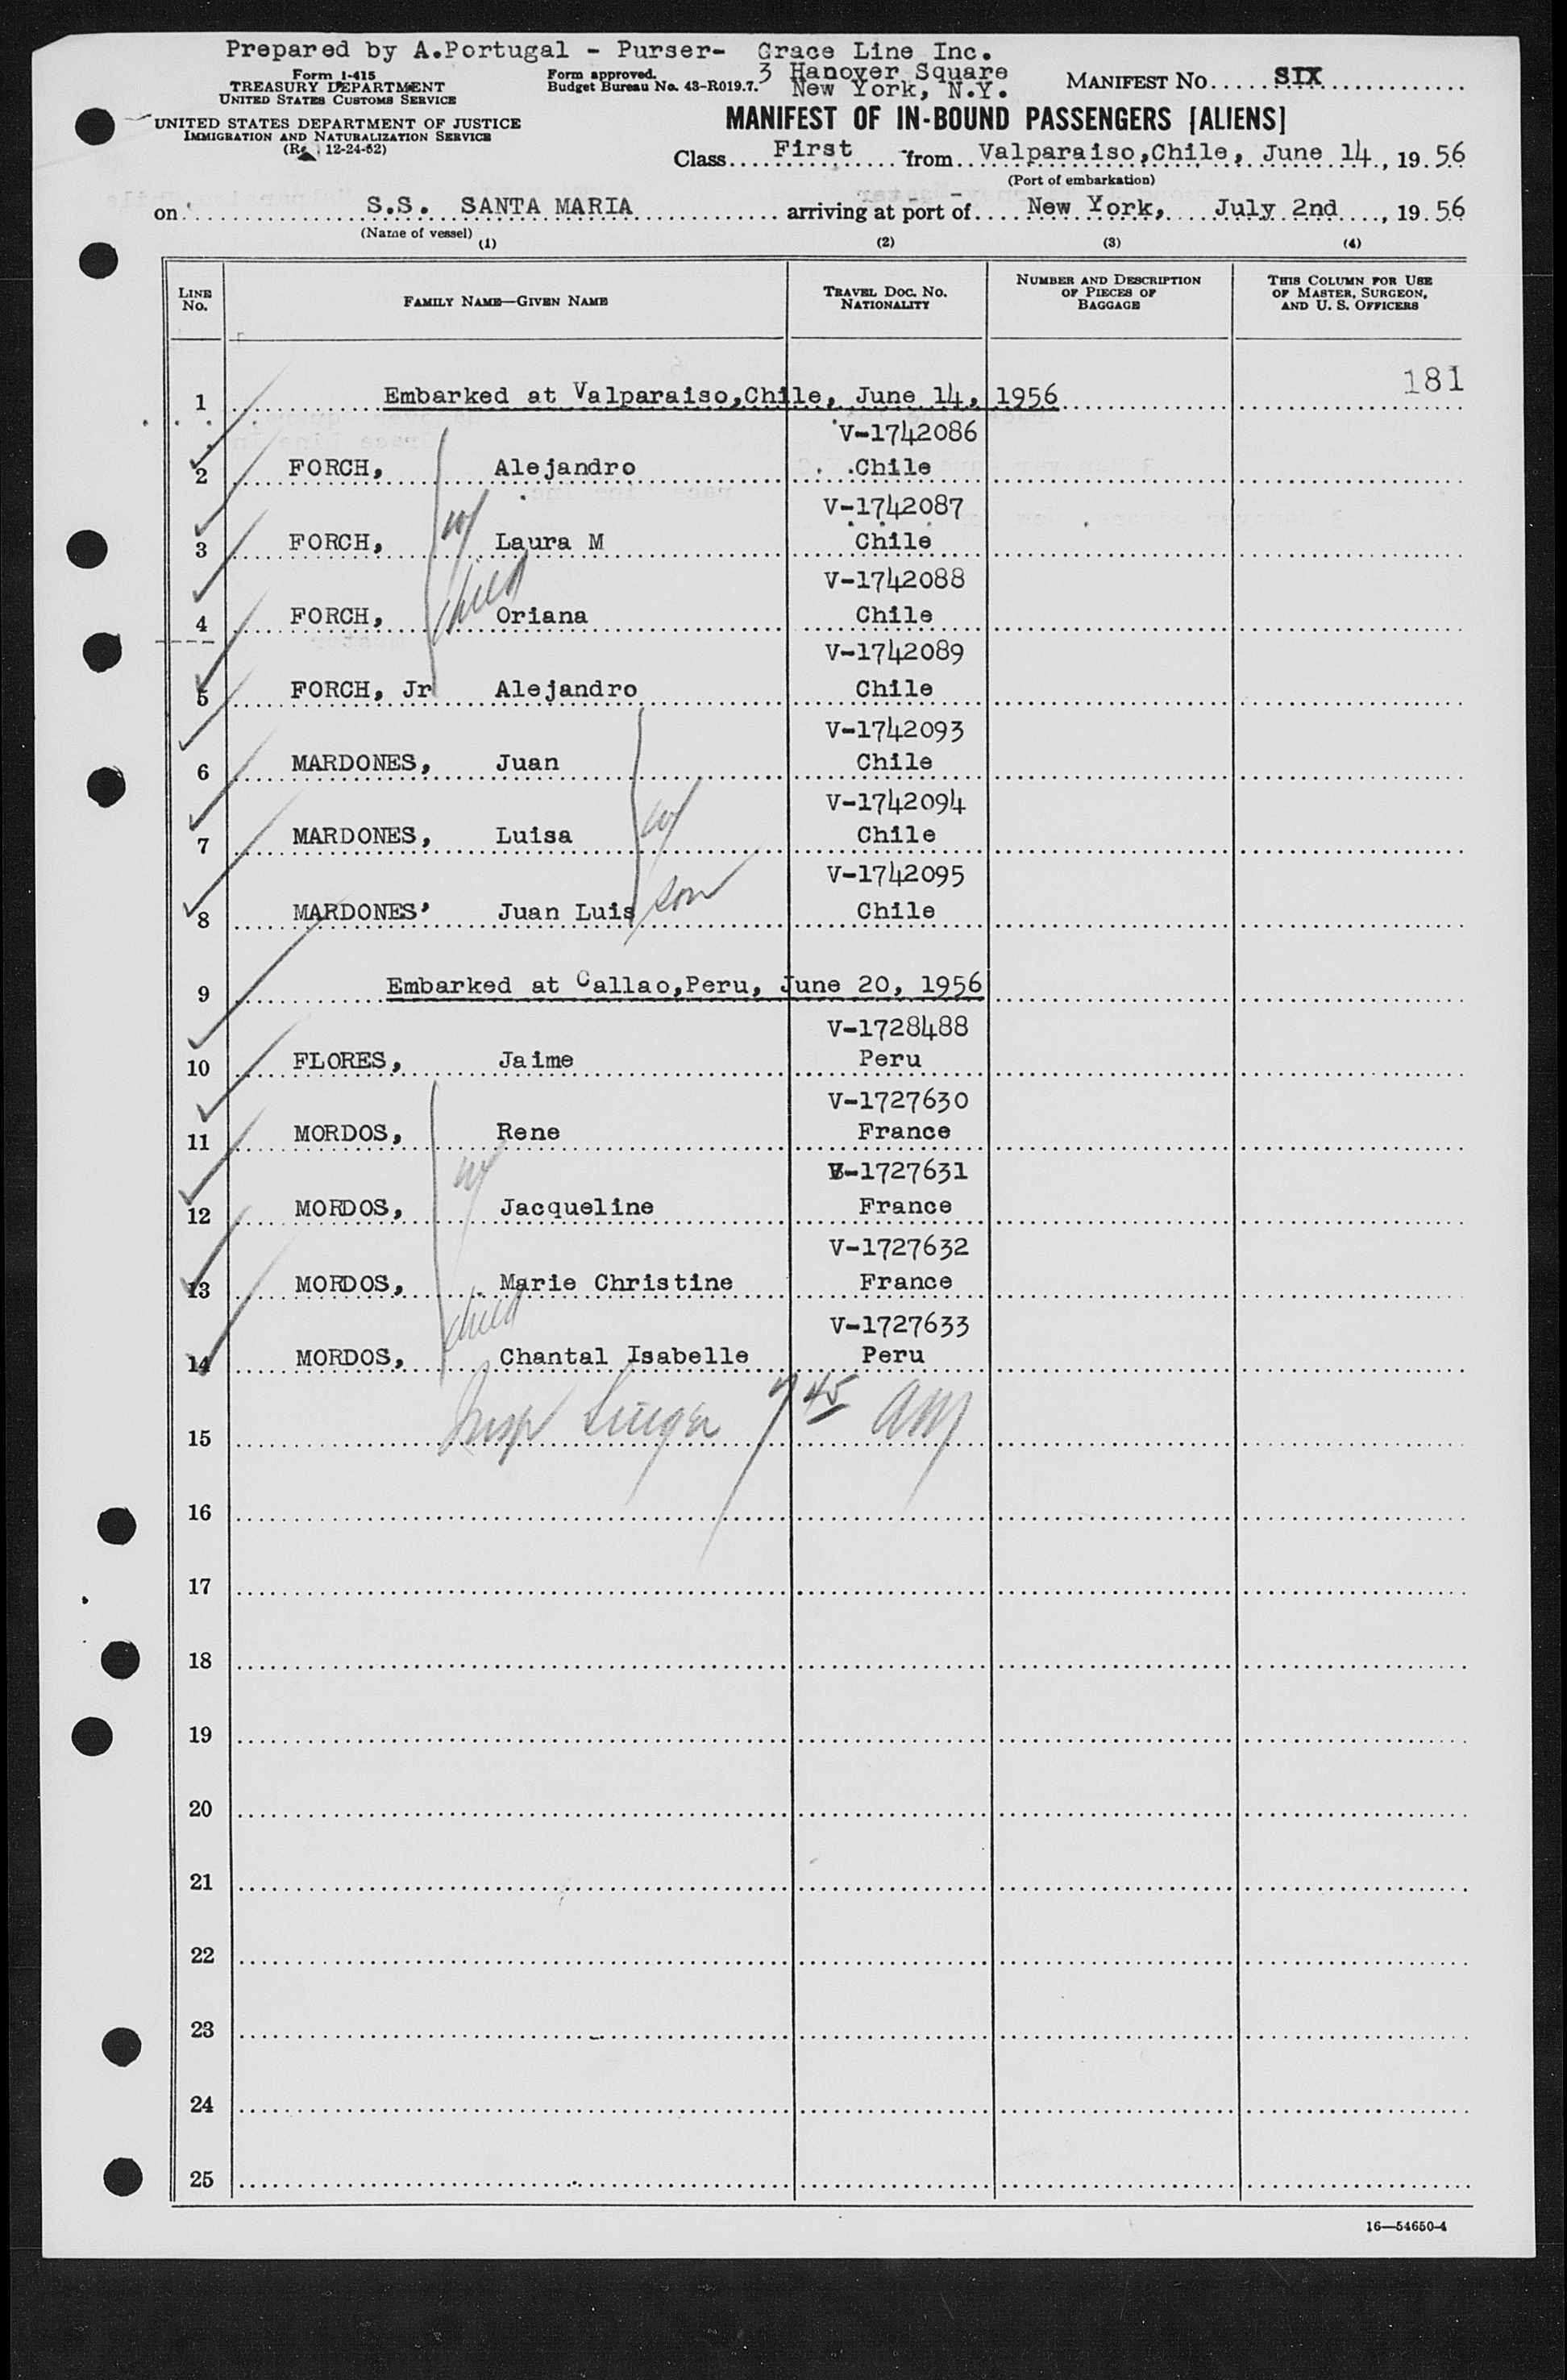 Prepared by A.Portugal - Purser- Grace Line Inc.
3 Hanover Square
New York, N.Y.
Form I-415
TREASURY DEPARTMENT
UNITED STATES CUSTOMS SERVICE
Form approved.
Budget Bureau No. 43-R019.7.
MANIFEST NO. SIX
UNITED STATES DEPARTMENT OF JUSTICE
IMMIGRATION AND NATURALIZATION SERVICE
12-24-52)
MANIFEST OF IN-BOUND PASSENGERS [ALIENS]
Class First from Valparaiso,Chile, June 14, 1956
(Port of embarkation)
on S.S. SANTA MARIA arriving at port of New York, July 2nd, 1956
(Name of vessel)
(1) (2) (3) (4)
LINE NO. FAMILY NAME—GIVEN NAME TRAVEL DOC. NO. NATIONALITY NUMBER AND DESCRIPTION OF PIECES OF BAGGAGE THIS COLUMN FOR USE OF MASTER, SURGEON, AND U. S. OFFICERS
181
1 Embarked at Valparaiso,Chile, June 14, 1956
V-1742086
2 FORCH, Alejandro Chile
V-1742087
3 FORCH, w/ Laura M Chile
V-1742088
4 FORCH, child Oriana Chile
V-1742089
5 FORCH, Jr Alejandro Chile
V-1742093
6 MARDONES, Juan Chile
V-1742094
7 MARDONES, Luisa w/ Chile
V-1742095
8 MARDONES' Juan Luis son Chile
9 Embarked at Callao,Peru, June 20, 1956
V-1728488
10 FLORES, Jaime Peru
V-1727630
11 MORDOS, Rene France
V-1727631
12 MORDOS, w/ Jacqueline France
V-1727632
13 MORDOS, Marie Christine France
V-1727633
14 MORDOS, child Chantal Isabelle Peru
15 Insp 7 45 AM
16
17
18
19
20
21
22
23
24
25
16—54650-4